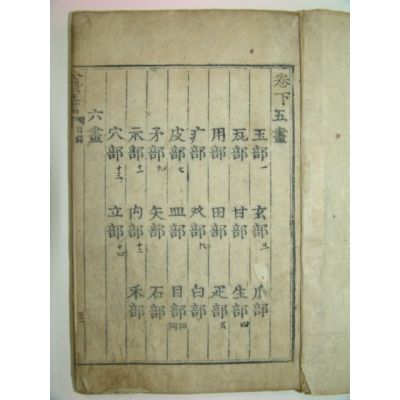 卷下 五畫
玉部一 玄部三 瓜部
瓦部 甘部 生部四
用部 田部 疋部五
疒部 癶部六 白部
皮部七 皿部 目部
矛部九 矢部 石部
示部十一 禸部十二 禾部
穴部十三 立部十四
六畫
目錄